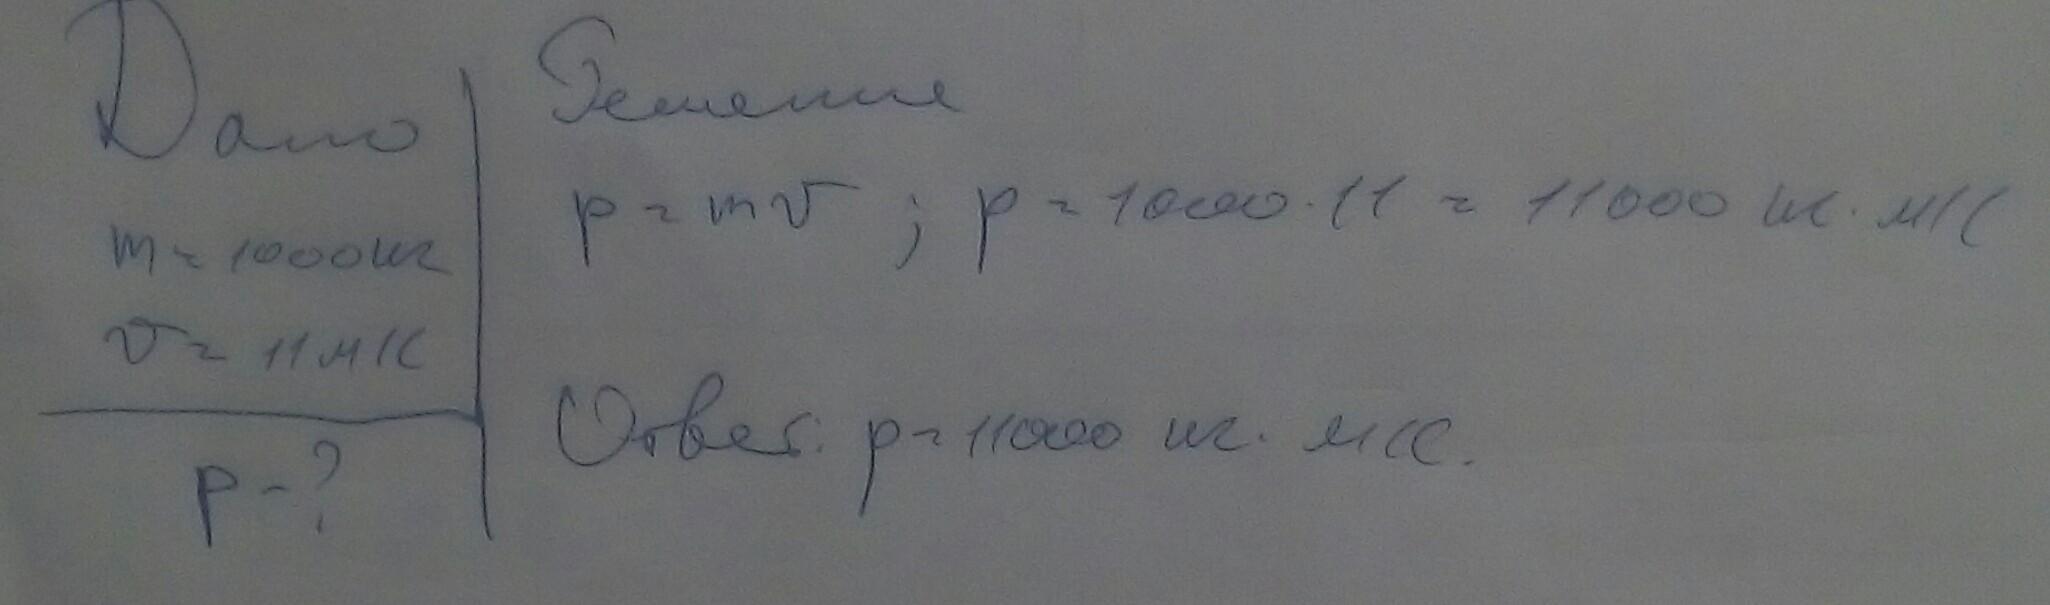 Дано
m = 1000 кг
v = 11 м/с
p - ?
Решение
p = mv ; p = 1000 · 11 = 11000 кг · м/с
Ответ: p = 11000 кг · м/с.